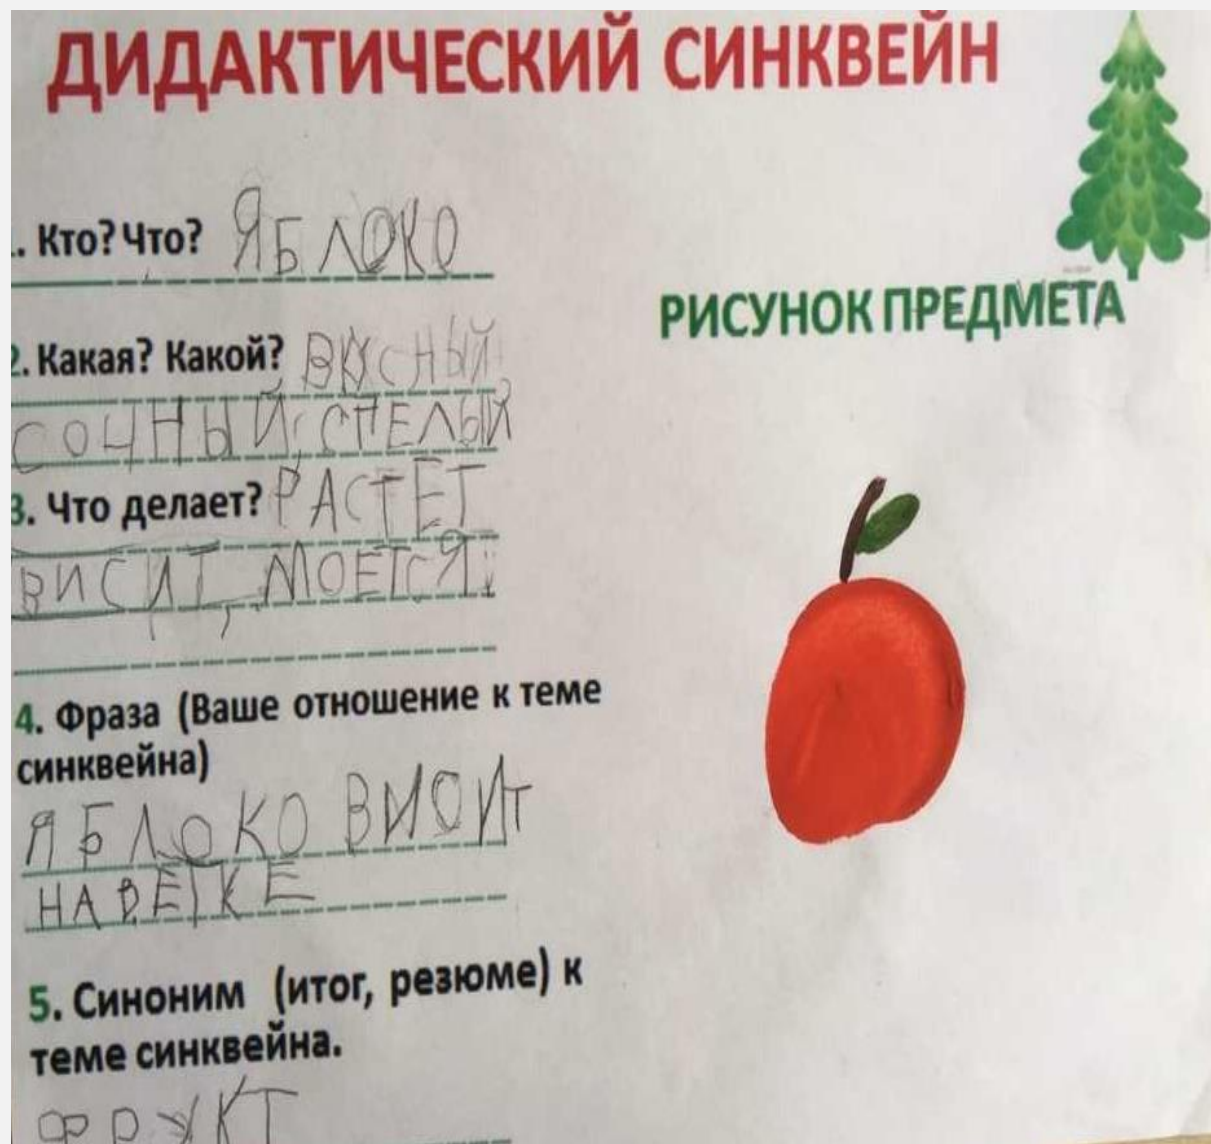 ДИДАКТИЧЕСКИЙ СИНКВЕЙН
. Кто? Что? ЯБЛОКО
РИСУНОК ПРЕДМЕТА
2. Какая? Какой? ВКУСНЫЙ
СОЧНЫЙ, СПЕЛЫЙ
3. Что делает? РАСТЕТ
ВИСИТ, МОЕТСЯ
4. Фраза (Ваше отношение к теме
синквейна)
ЯБЛОКО ВИСИТ
НА ВЕТКЕ
5. Синоним (итог, резюме) к
теме синквейна.
ФРУКТ